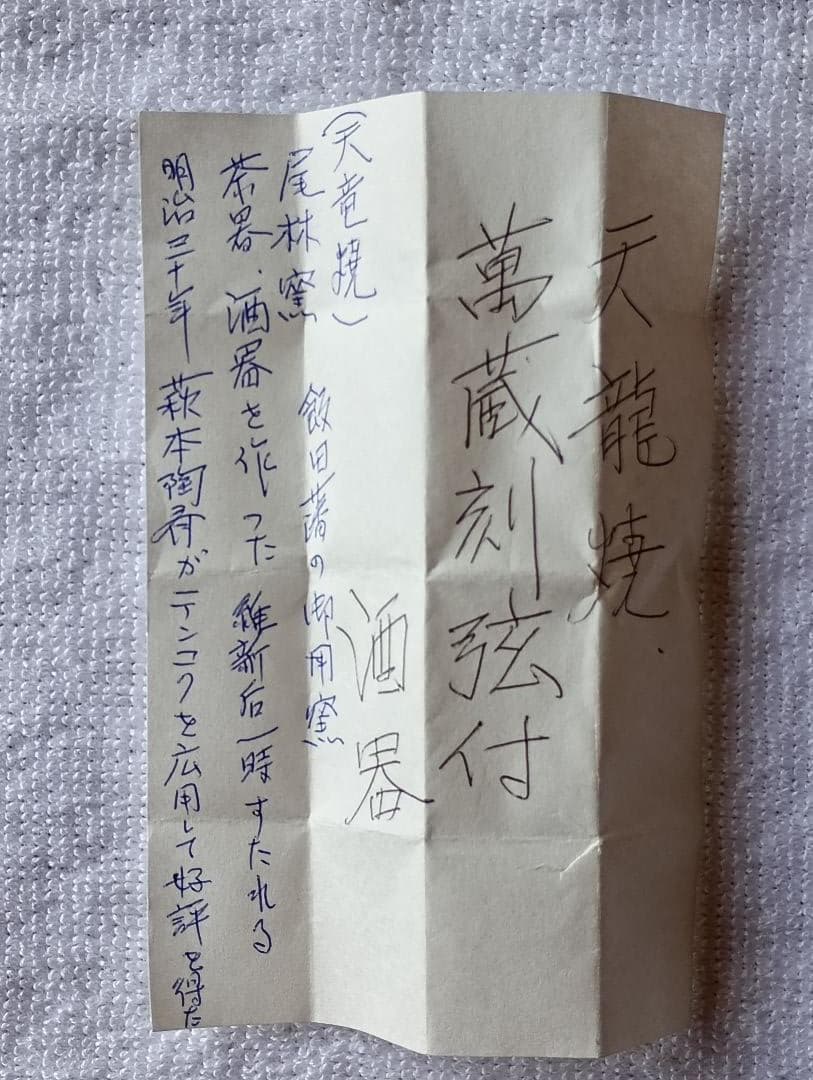 天龍燒.
萬蔵刻弦付
酒器
(天竜焼)
尾林窯 飯田藩の御用窯
茶器、酒器を作った 維新后一時すたれる
明治三十年 萩本陶斉がテンコクを広用して好評を得た